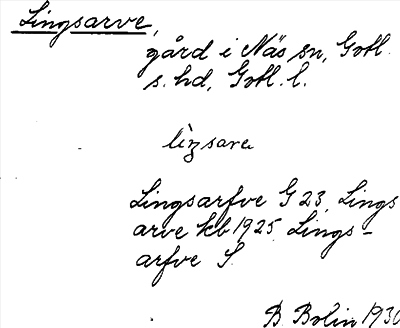 Lingsarve,
gård i Näs sn, Gotl.
s. hd, Gotl. l.
lìŋsarve
Lingsarfve G 23, Lings
arve kb 1925 Lings-
arfve S.
B. Bolin 1930